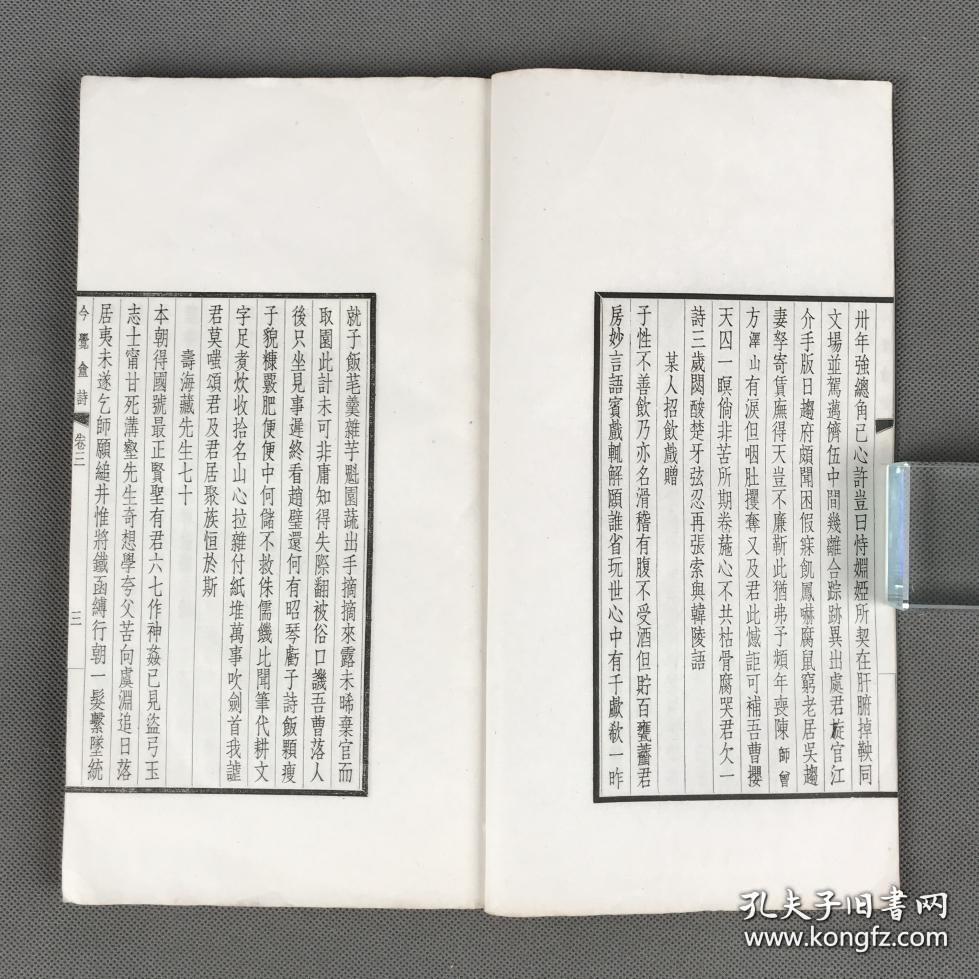 卅年強總角已心許豈曰恃婣婭所契在肝腑掉鞅同
文場並駕邁儕伍中間幾離合踪跡異出處君旋官江
介手版日趨府頗聞困假寐飢鳳嚇腐鼠窮老居吳趨
妻孥寄賃廡得天豈不廉靳此猶弗予頻年喪陳師曾
方澤山有淚但咽肚攫奪又及君此憾詎可補吾曹攖
天囚一瞑倘非苦所期卷葹心不共枯骨腐哭君欠一
詩三歲閟酸楚牙弦忍再張索與韓陵語
某人招飲戲贈
子性不善飲乃亦名滑稽有腹不受酒但貯百甕虀君
房妙言語賓戲輒解頤誰省玩世心中有千歔欷一昨
就子飯芼羹雜芋魁園蔬出手摘摘來露未晞棄官而
取園此計未可非庸知得失際翻被俗口譏吾曹落人
後只坐見事遲終看趙璧還何有昭琴虧子詩飯顆瘦
子貌糠覈肥便便中何儲不救侏儒饑比聞筆代耕文
字足煮炊收拾名山心拉雜付紙堆萬事吹劍首我謔
君莫嗤頌君及君居聚族恒於斯
壽海藏先生七十
本朝得國號最正賢聖有君六七作神姦已見盜弓玉
志士甯甘死溝壑先生奇想學夸父苦向虞淵追日落
居夷未遂乞師願縋井惟將鐵函縛行朝一髮繫墜統
今覺盦詩 卷三 三
孔夫子旧书网
www.kongfz.com